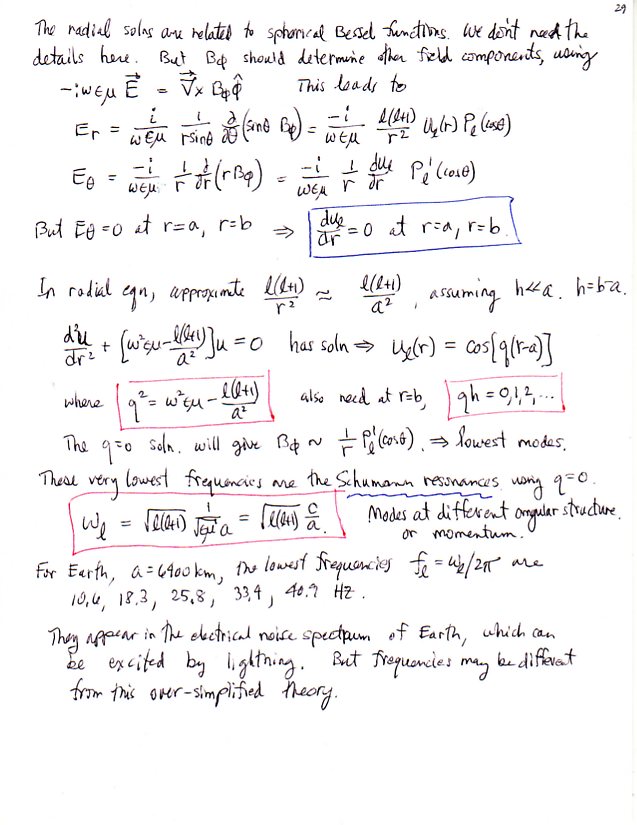 29
The radial solns are related to spherical Bessel functions. We don't need the
details here. But Bφ should determine other field components, using
-iωεμ E⃗ = ∇⃗ × Bφ φ̂ This leads to
Er = i/ωεμ 1/(r sinθ) ∂/∂θ (sinθ Bφ) = -i/ωεμ l(l+1)/r² u_l(r) P_l(cosθ)
Eθ = -i/ωεμ 1/r ∂/∂r (r Bφ) = -i/ωεμ 1/r du_l/dr P_l^1(cosθ)
But Eθ = 0 at r=a, r=b ⇒ du_l/dr = 0 at r=a, r=b.
In radial eqn, approximate l(l+1)/r² ≈ l(l+1)/a², assuming h≪a. h=b-a.
d²u/dr² + [ω²εμ - l(l+1)/a²]u = 0 has soln ⇒ u_l(r) = cos[q(r-a)]
where q² = ω²εμ - l(l+1)/a² also need at r=b, qh = 0,1,2,...
The q=0 soln. will give Bφ ~ 1/r P_l^1(cosθ). ⇒ lowest modes.
These very lowest frequencies are the Schumann resonances, using q=0.
ω_l = √l(l+1) 1/(√εμ a) = √l(l+1) c/a. Modes at different angular structure.
or momentum.
For Earth, a=6400km, the lowest frequencies f_l = ω_l/2π are
10.6, 18.3, 25.8, 33.4, 40.9 Hz.
They appear in the electrical noise spectrum of Earth, which can
be excited by lightning. But frequencies may be different
from this over-simplified theory.